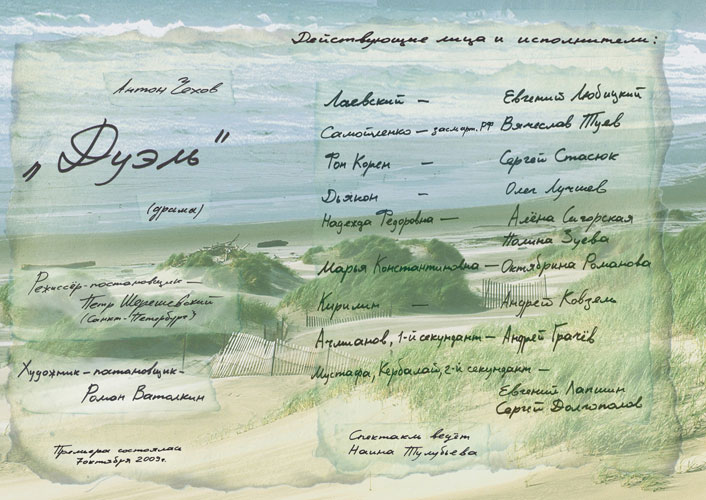 Антон Чехов
„Дуэль"
(драма)
Режиссёр-постановщик —
Пётр Шерешевский
(Санкт-Петербург)
Художник-постановщик-
Роман Ватолкин
Премьера состоялась
7 октября 2009г.
Действующие лица и исполнители:
Лаевский — Евгений Любицкий
Самойленко — засл.арт. РФ Вячеслав Туев
Фон Корен — Сергей Стасюк
Дьякон — Олег Лучшев
Надежда Федоровна — Алёна Сигорская
Полина Зуева
Марья Константиновна — Октябрина Романова
Кирилин — Андрей Ковзель
Ачмианов, 1-й секундант — Андрей Грачёв
Мустафа, Кербалай, 2-й секундант —
Евгений Лапшин
Сергей Долгополов
Спектакль ведёт
Наина Тулубьева